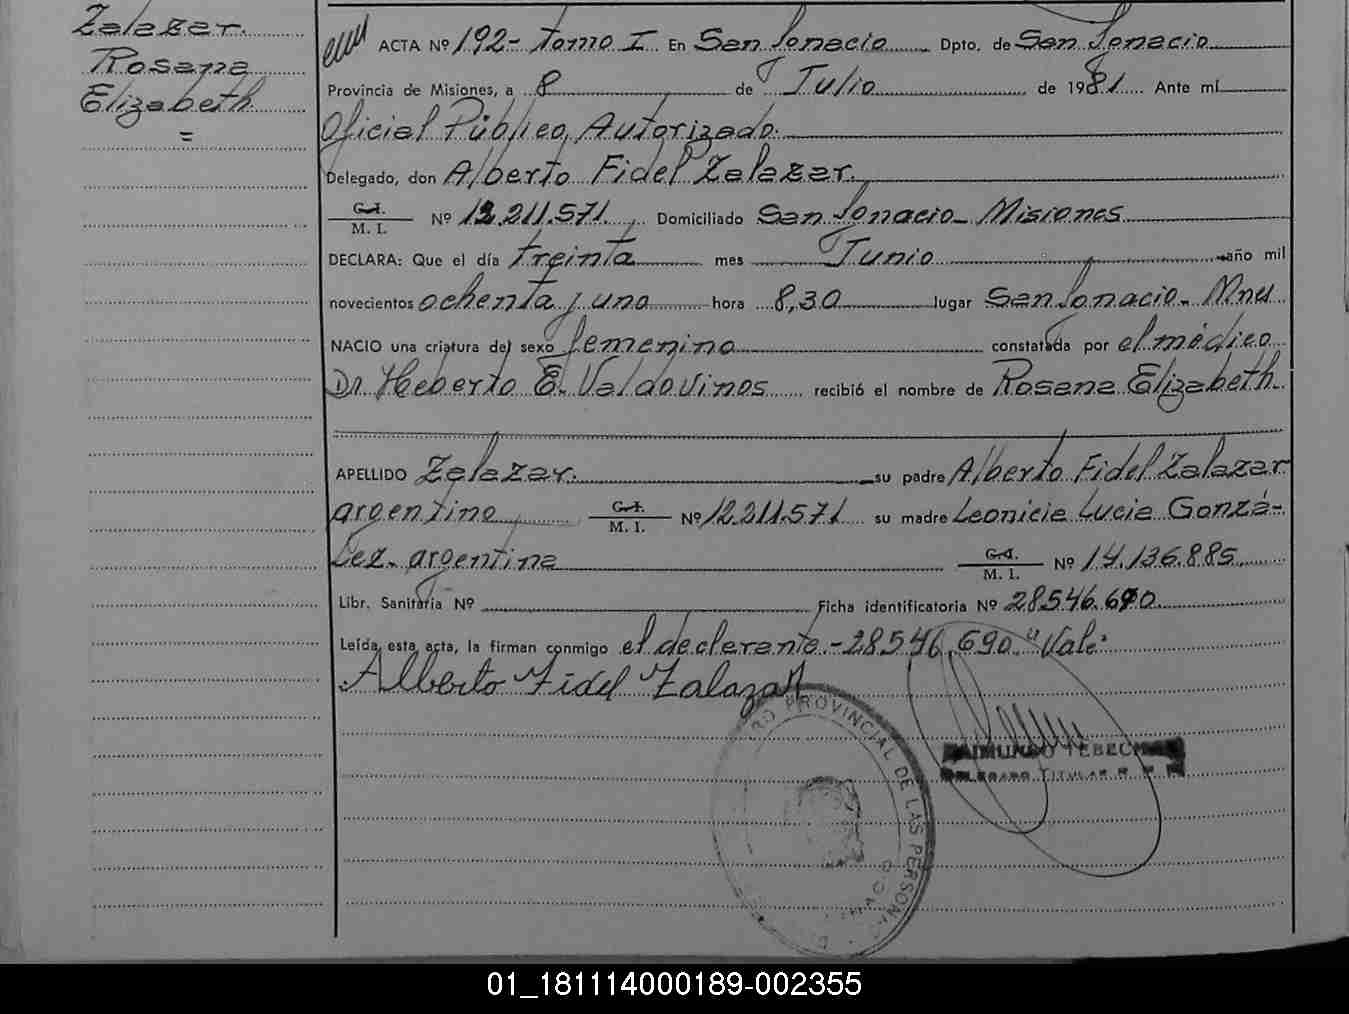 Zalazar.
Rosana
Elizabeth
=
ACTA Nº 192- Tomo I En San Ignacio Dpto. de San Ignacio
Provincia de Misiones, a 8 de Julio de 1981 Ante mí
Oficial Público, Autorizado.
Delegado, don Alberto Fidel Zalazar.
C.I.
M. I. Nº 12.211.571. Domiciliado San Ignacio- Misiones
DECLARA: Que el día treinta mes Junio año mil
novecientos ochenta y uno hora 8,30 lugar San Ignacio- Mnes
NACIO una criatura del sexo femenino constatada por el médico
Dr. Heberto E. Valdovinos recibió el nombre de Rosana Elizabeth
APELLIDO Zalazar. su padre Alberto Fidel Zalazar
argentino, C.I.
M. I. Nº 12.211.571 su madre Leonicia Lucia Gonzá-
lez- argentina C.I.
M. I. Nº 14.136.885
Libr. Sanitaria Nº Ficha identificatoria Nº 28.546.690
Leída esta acta, la firman conmigo el declarante.-28.546.690."Vale"
Alberto Fidel Zalazar
RO PROVINCIAL DE LAS PERSONAS
RAIMUNDO TEBECHA
DELEGADO TITULAR
01_181114000189-002355